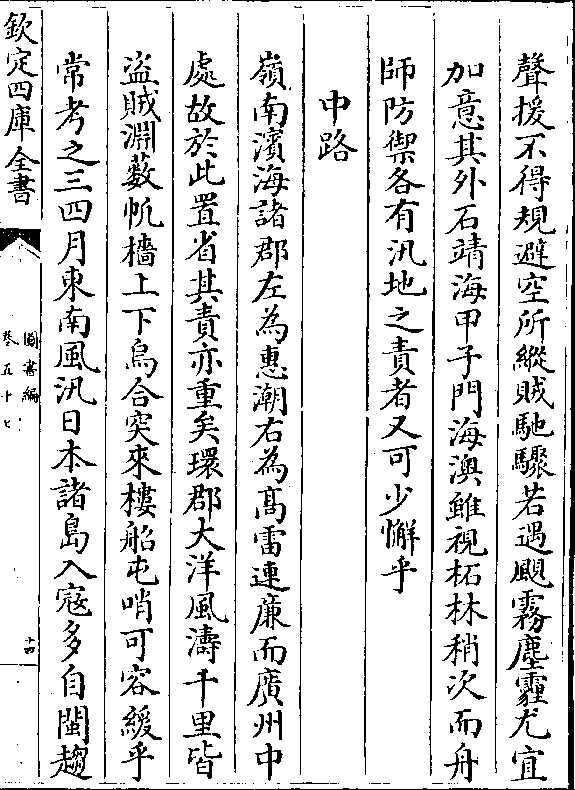 聲援不得規避空所縱賊馳驟若遇颶霧塵霾尤宜
加意其外石靖海甲子門海澳雖視柘林稍次而舟
師防禦各有汛地之責者又可少懈乎
中路
嶺南濱海諸郡左為惠潮右為髙雷連廉而廣州中
處故於此置省其責亦重矣環郡大洋風濤千里皆
盗賊淵藪帆檣上下烏合突來樓船屯哨可容緩乎
常考之三四月東南風汛日本諸島入寇多自閩趨
欽定四庫全書
圖書編
卷五十七
十四